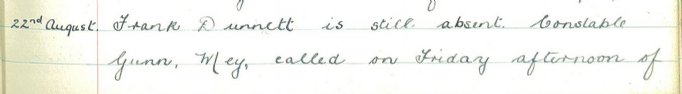 22nd August. Frank Dunnett is still absent. Constable
Gunn, Mey, called on Friday afternoon of